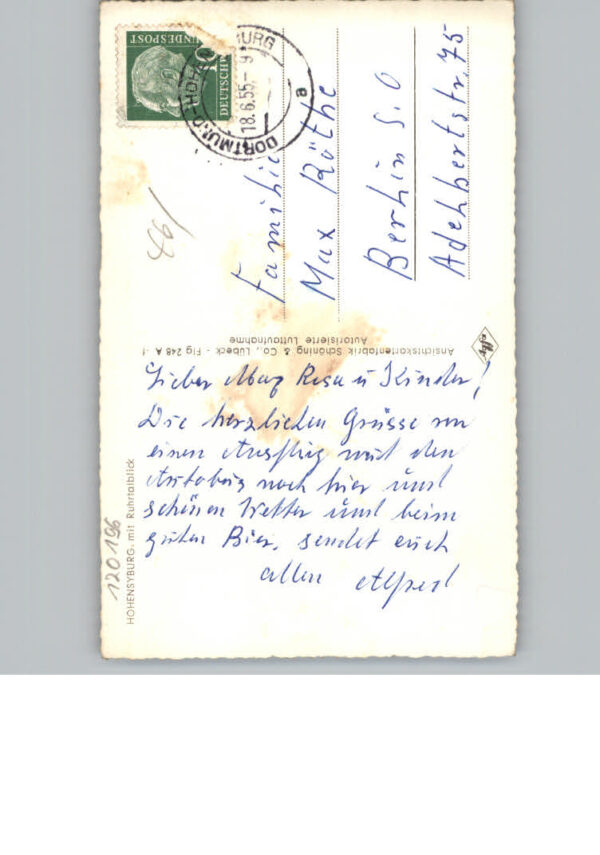 Lieber Max Rosa u Kinder!
Die herzlichen Grüsse von
einen Ausflug mit den
Autobus nach hier und
schönen Wetter und beim
guten Bier, sendet euch
allen Alfred
Familie
Max Röthe
Berlin S.O
Adelbertstr. 75
HOHENSYBURG, mit Ruhrtalblick
120196
Ansichtskartenfabrik Schöning & Co., Lübeck - Flg 248 A
Autorisierte Luftaufnahme
DEUTSCHE
BUNDESPOST
10
DORTMUND-HOHENSYBURG
18.6.55.-9
a